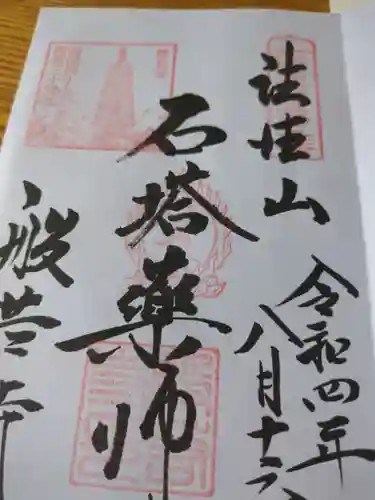 法性山
令和四年
八月十六
石塔藥師
般若寺